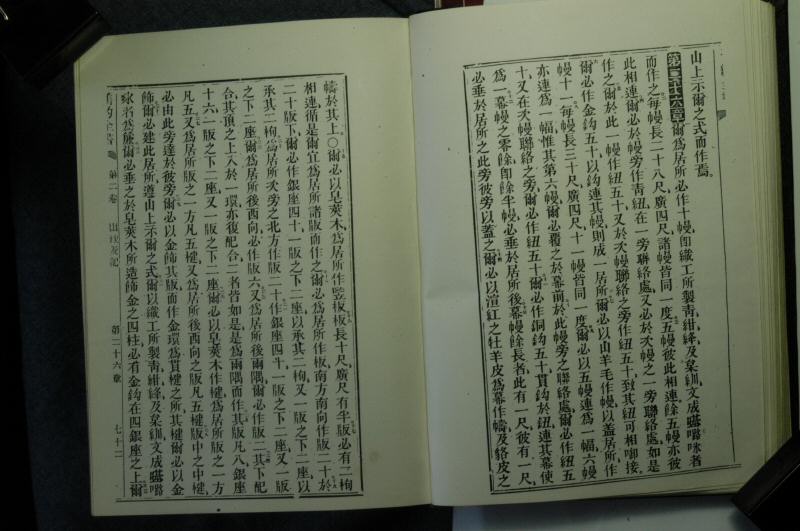 山上示爾之式而作焉。
第二十六章爾爲居所必作十幔卽織工所製靑紺絳及枲紃文成𠼻𡀔㕽者
而作之每幔長二十八尺廣四尺諸幔皆同一度五幔彼此相連餘五幔亦彼
此相連爾必於幔旁作靑紐在一旁聯絡處又必於次幔之一旁聯絡處如是
作之爾於此一幔作紐五十又於次幔聯絡之旁作紐五十致其紐可相啣接
爾必作金鈎五十以鈎連其幔則成一居所爾必以山羊毛作幔以蓋居所作
幔十一每幔長三十尺廣四尺十一幔皆同一度爾必以五幔連爲一幅六幔
亦連爲一幅惟其第六幔爾必覆之於幕前於此幔旁之聯絡處爾必作紐五
十又在次幔聯絡之旁爾必作紐五十爾必作銅鈎五十貫鈎於紐連其幕使
爲一幕幔之零餘卽餘半幔必垂於居所後幕幔餘長者此有一尺彼有一尺
必垂於居所之此旁彼旁以蓋之爾必以渲紅之牡羊皮爲幕作幬及貉皮之
幬於其上〇爾必以皂莢木爲居所作竪板板長十尺廣尺有半版必有二枸
相連循是爾宜爲居所諸版而作之爾必爲居所作板南方南向作版二十於
二十版下爾必作銀座四十一版之下二座以承其二枸又一版之下二座以
承其二枸爲居所次旁之北方作版二十作銀座四十一版之下二座又一版
之下二座爾爲居所後西向必作版六又爲居所後兩隅爾必作版二其下配
合其頂之上入於一環亦復配合二者皆如是是爲兩隅而作其版凡八銀座
十六一版之下二座又一版之下二座爾必以皂莢木作楗爲居所版之一方
凡五又爲居所版之一方凡五楗又爲居所後西向之版凡五楗版中之中楗
必由此旁達於彼旁爾必以金飾其版而作金環爲貫楗之所其楗爾必以金
飾爾必建此居所遵山上示爾之式爾以織工所製靑紺絳及枲紃文成𠼻𡀔
㕽者爲簾爾必垂之於皂莢木所造飾金之四柱必有金鈎在四銀座之上爾
第二卷
第二十六章
七十二